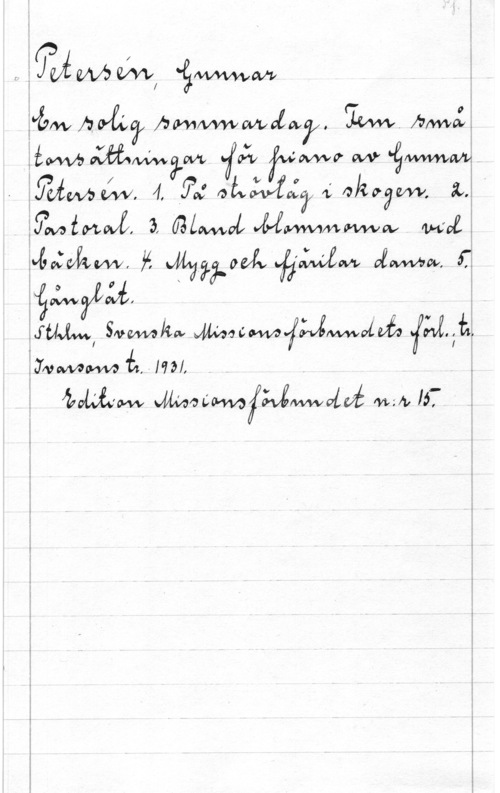 Pf.
Petersén, Gunnar
En solig sommardag. Fem små
tonsättningar för piano av Gunnar
Petersén. 1. På strövtåg i skogen. 2.
Pastoral. 3. Bland blommorna vid
bäcken. 4. Mygg och fjärilar dansa. 5.
Gånglåt.
Sthlm, Svenska Missionsförbundets förl.; tr.
Ivarsons tr. 1931.
Edition Missionsförbundet n:r 15.